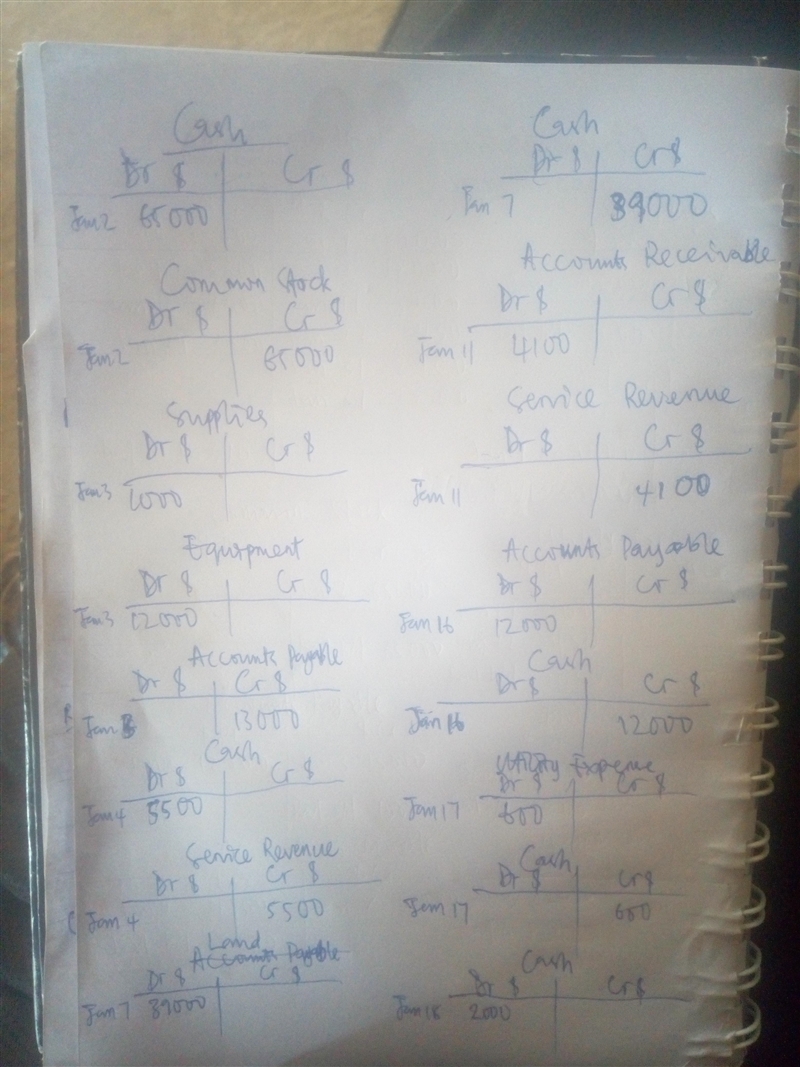 Cash
Dr $ Cr $
Jan 2 65000
Common Stock
Dr $ Cr $
Jan 2 65000
Supplies
Dr $ Cr $
Jan 3 1000
Equipment
Dr $ Cr $
Jan 3 12000
Accounts Payable
Dr $ Cr $
Jan 3 13000
Cash
Dr $ Cr $
Jan 4 5500
Service Revenue
Dr $ Cr $
Jan 4 5500
Land
Accounts Payable
Dr $ Cr $
Jan 7 39000
Cash
Dr $ Cr $
Jan 7 39000
Accounts Receivable
Dr $ Cr $
Jan 11 4100
Service Revenue
Dr $ Cr $
Jan 11 4100
Accounts Payable
Dr $ Cr $
Jan 16 12000
Cash
Dr $ Cr $
Jan 16 12000
Utility Expense
Dr $ Cr $
Jan 17 600
Cash
Dr $ Cr $
Jan 17 600
Cash
Dr $ Cr $
Jan 18 2000